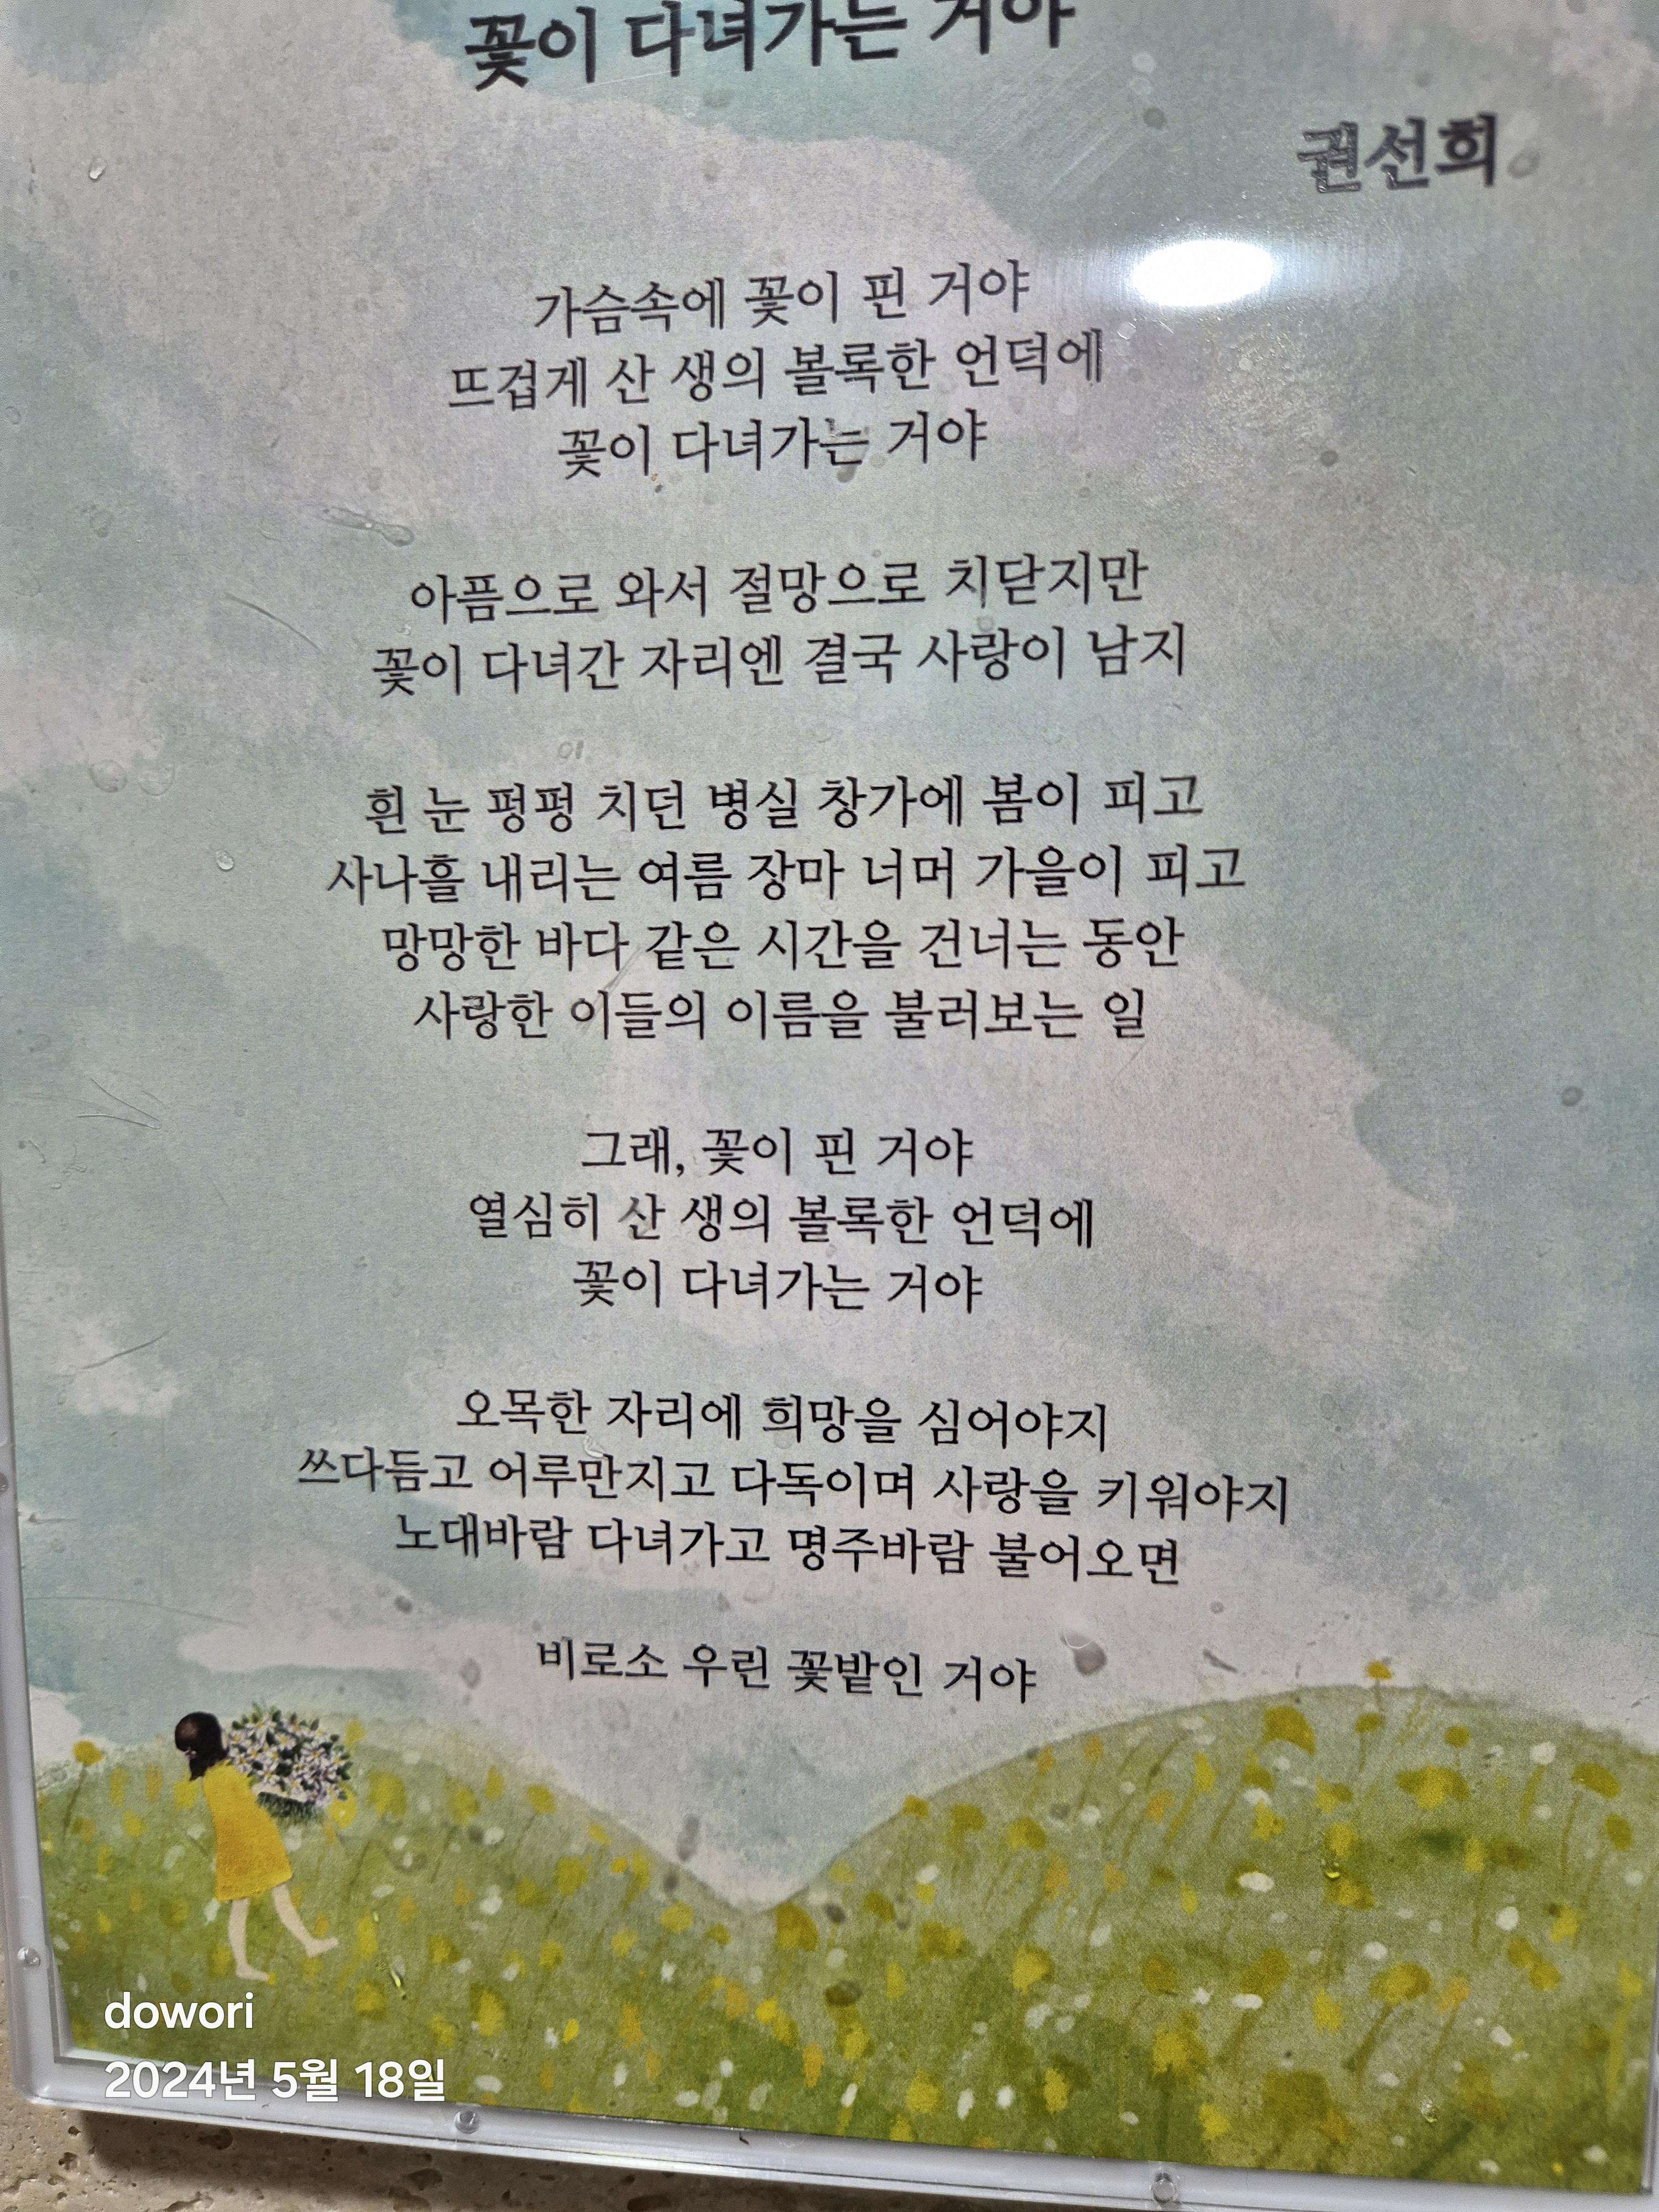 꽃이 다녀가는 거야
권선희
가슴속에 꽃이 핀 거야
뜨겁게 산 생의 볼록한 언덕에
꽃이 다녀가는 거야
아픔으로 와서 절망으로 치닫지만
꽃이 다녀간 자리엔 결국 사랑이 남지
흰 눈 펑펑 치던 병실 창가에 봄이 피고
사나흘 내리는 여름 장마 너머 가을이 피고
망망한 바다 같은 시간을 건너는 동안
사랑한 이들의 이름을 불러보는 일
그래, 꽃이 핀 거야
열심히 산 생의 볼록한 언덕에
꽃이 다녀가는 거야
오목한 자리에 희망을 심어야지
쓰다듬고 어루만지고 다독이며 사랑을 키워야지
노대바람 다녀가고 명주바람 불어오면
비로소 우린 꽃밭인 거야
dowori
2024년 5월 18일